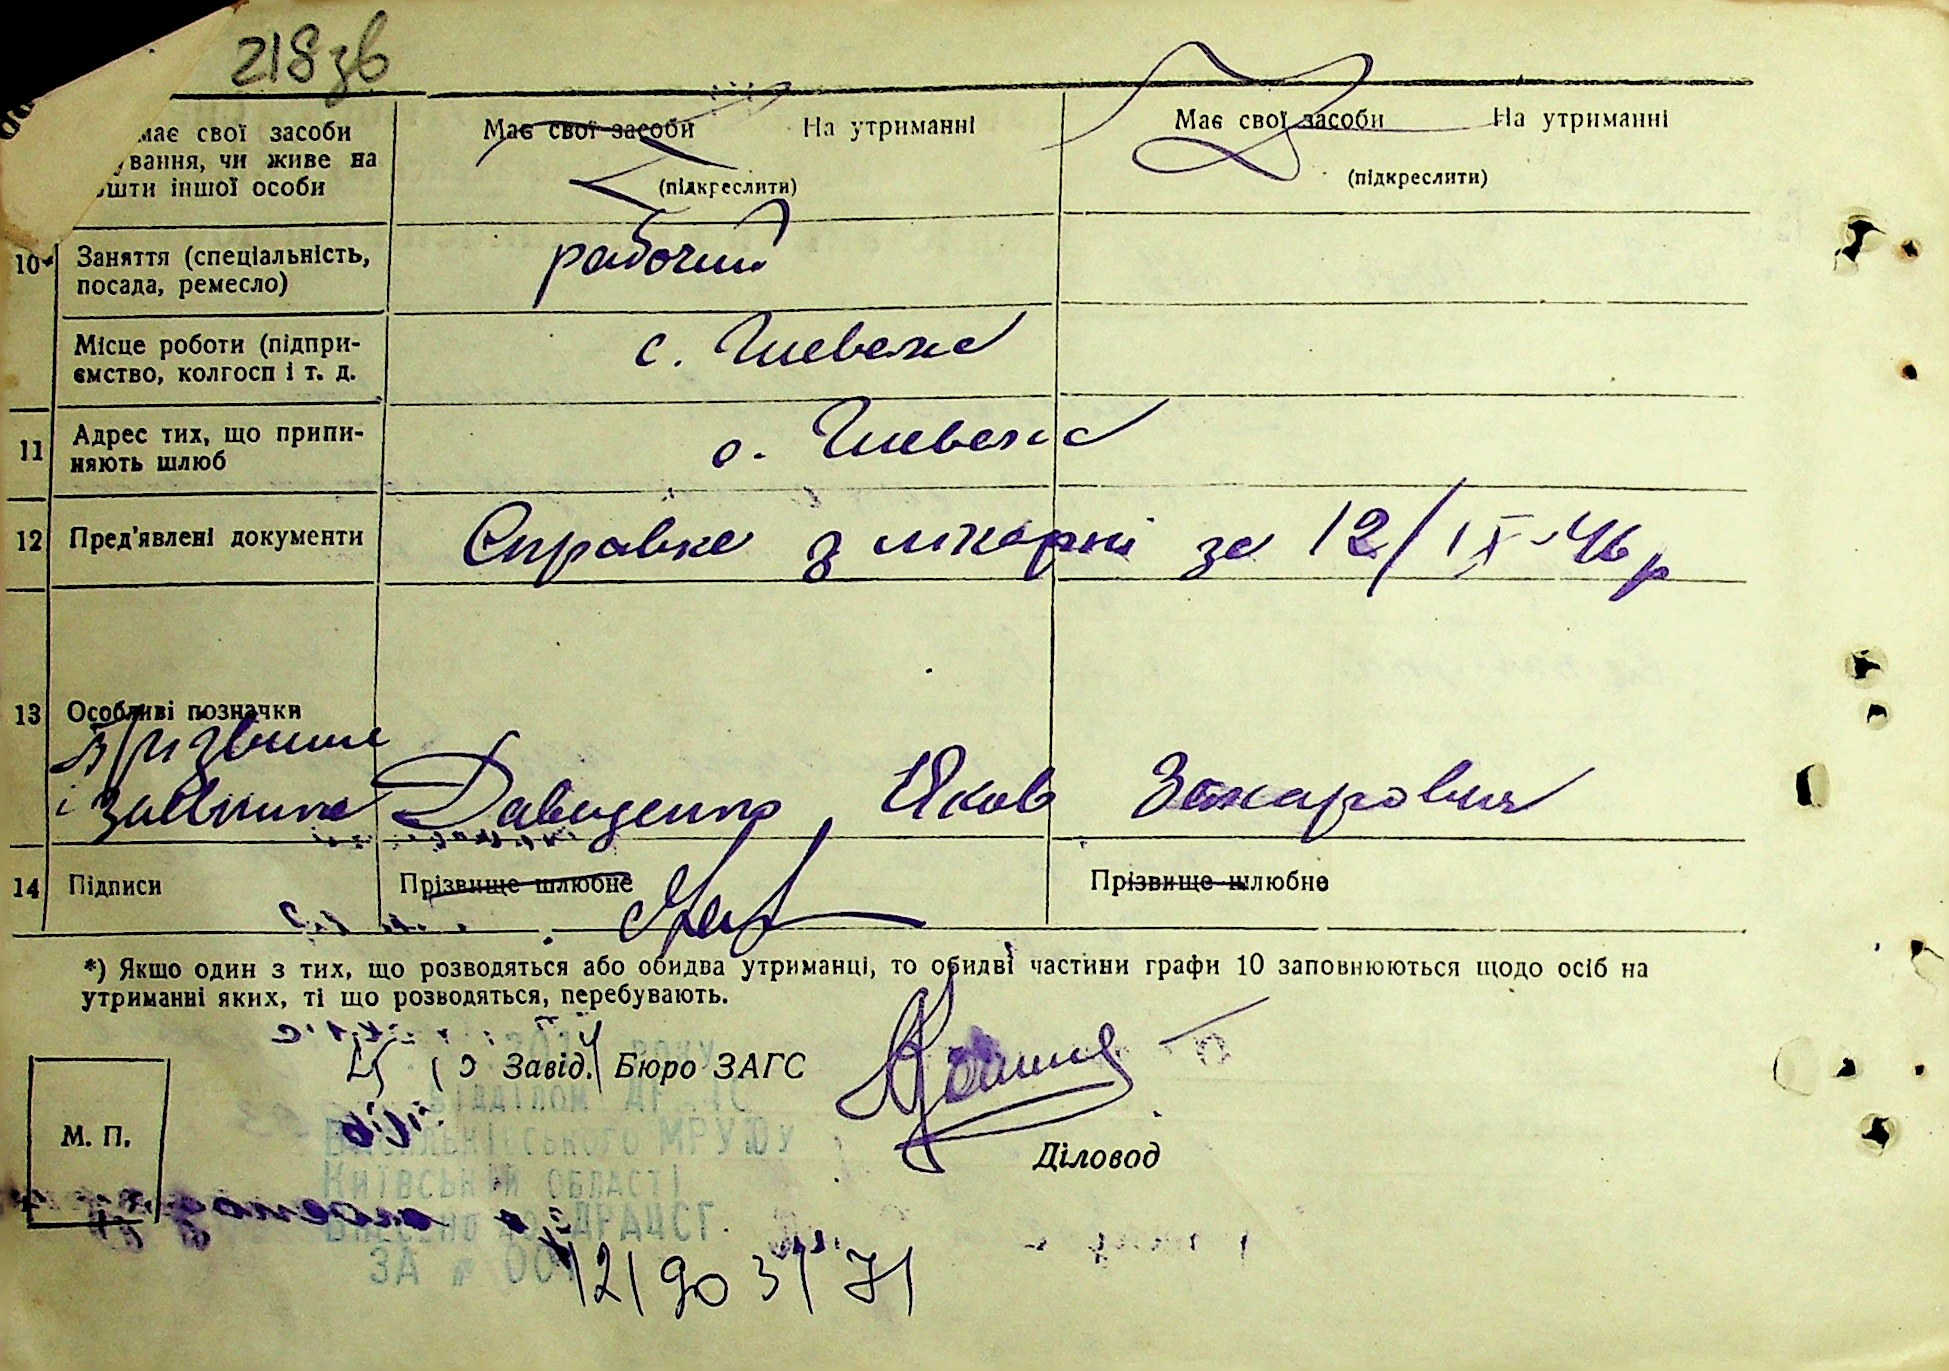 218зв
має свої засоби
ування, чи живе на
ошти іншої особи
Має свої засоби На утриманні
(підкреслити)
Має свої засоби На утриманні
(підкреслити)
10 Заняття (спеціальність,
посада, ремесло)
рабочий
Місце роботи (підпри-
ємство, колгосп і т. д.
с.
11 Адрес тих, що припи-
няють шлюб
с.
12 Пред'явлені документи
Справка з лікарні за 12/IX-46р
13 Особливі позначки
Прізвище
і заявника Давиденко Яков Захарович
14 Підписи
Прізвище шлюбне
Прізвище шлюбне
*) Якщо один з тих, що розводяться або обидва утриманці, то обидві частини графи 10 заповнюються щодо осіб на
утриманні яких, ті що розводяться, перебувають.
Завід. Бюро ЗАГС
М. П.
Діловод
РОКУ
ВІДДІЛОМ ДРАЦС
ВАСИЛЬКІВСЬКОГО МРУЮ
КИЇВСЬКІЙ ОБЛАСТІ
ВНЕСЕНО ДО ДРАЦСГ
ЗА № 001